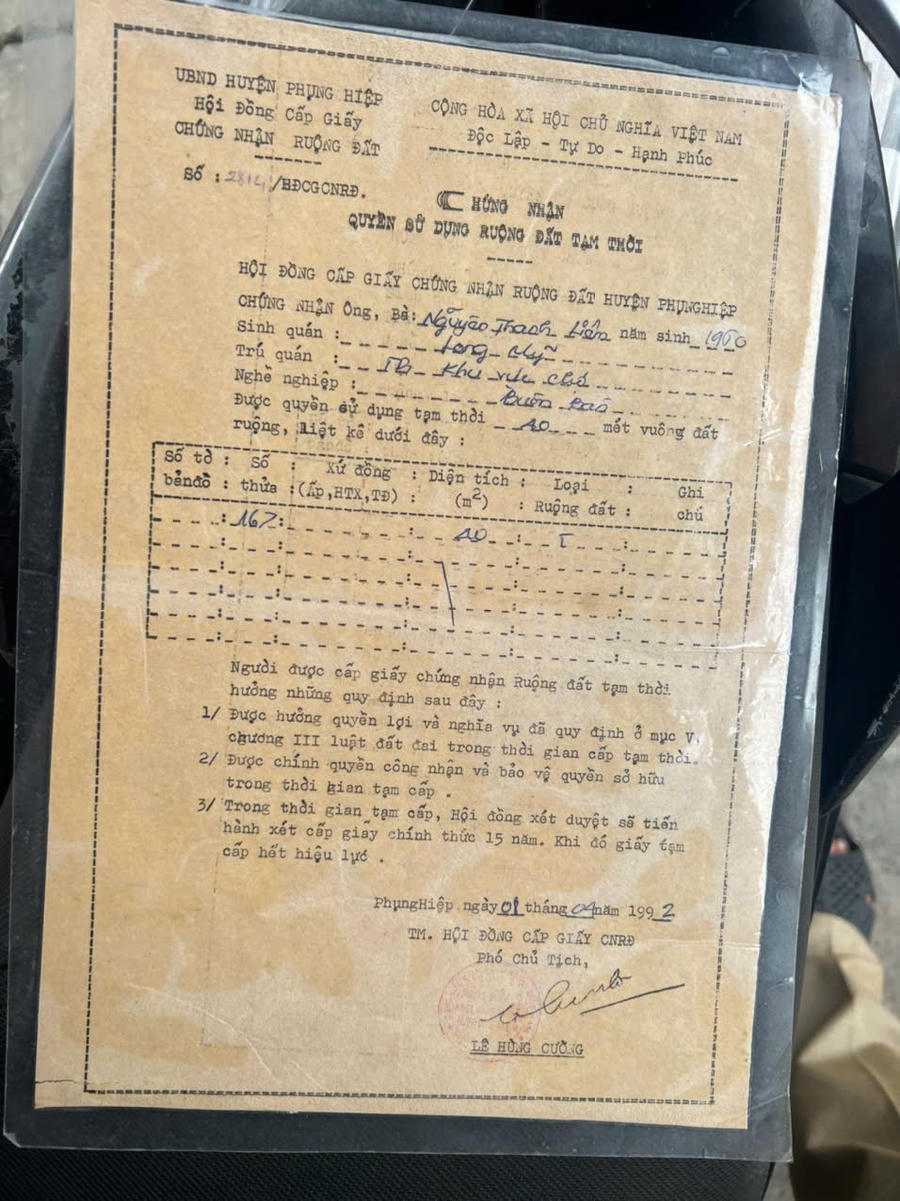 UBND HUYỆN PHỤNG HIỆP
Hội Đồng Cấp Giấy
CHỨNG NHẬN RUỘNG ĐẤT
Số : 2814/HĐCGCNRĐ.
CỘNG HÒA XÃ HỘI CHỦ NGHĨA VIỆT NAM
Độc Lập - Tự Do - Hạnh Phúc
CHỨNG NHẬN
QUYỀN SỬ DỤNG RUỘNG ĐẤT TẠM THỜI
HỘI ĐỒNG CẤP GIẤY CHỨNG NHẬN RUỘNG ĐẤT HUYỆN PHỤNGHIỆP
CHỨNG NHẬN Ông, Bà: Nguyễn Thanh Liên năm sinh 1960
Sinh quán : Long Mỹ
Trú quán : Khu vực chợ
Nghề nghiệp : Buôn bán
Được quyền sử dụng tạm thời 40 mét vuông đất
ruộng, liệt kê dưới đây :
Số tờ bảnđồ : Số thửa : Xứ đồng (Ấp,HTX,TĐ) : Diện tích (m2) : Loại Ruộng đất : Ghi chú
167 : 40 : T
Người được cấp giấy chứng nhận Ruộng đất tạm thời
hưởng những quy định sau đây :
1/ Được hưởng quyền lợi và nghĩa vụ đã quy định ở mục V,
chương III luật đất đai trong thời gian cấp tạm thời.
2/ Được chính quyền công nhận và bảo vệ quyền sở hữu
trong thời gian tạm cấp .
3/ Trong thời gian tạm cấp, Hội đồng xét duyệt sẽ tiến
hành xét cấp giấy chính thức 15 năm. Khi đó giấy tạm
cấp hết hiệu lực .
PhụngHiệp ngày 01 tháng 04 năm 1992
TM. HỘI ĐỒNG CẤP GIẤY CNRĐ
Phó Chủ Tịch,
LÊ HÙNG CƯỜNG